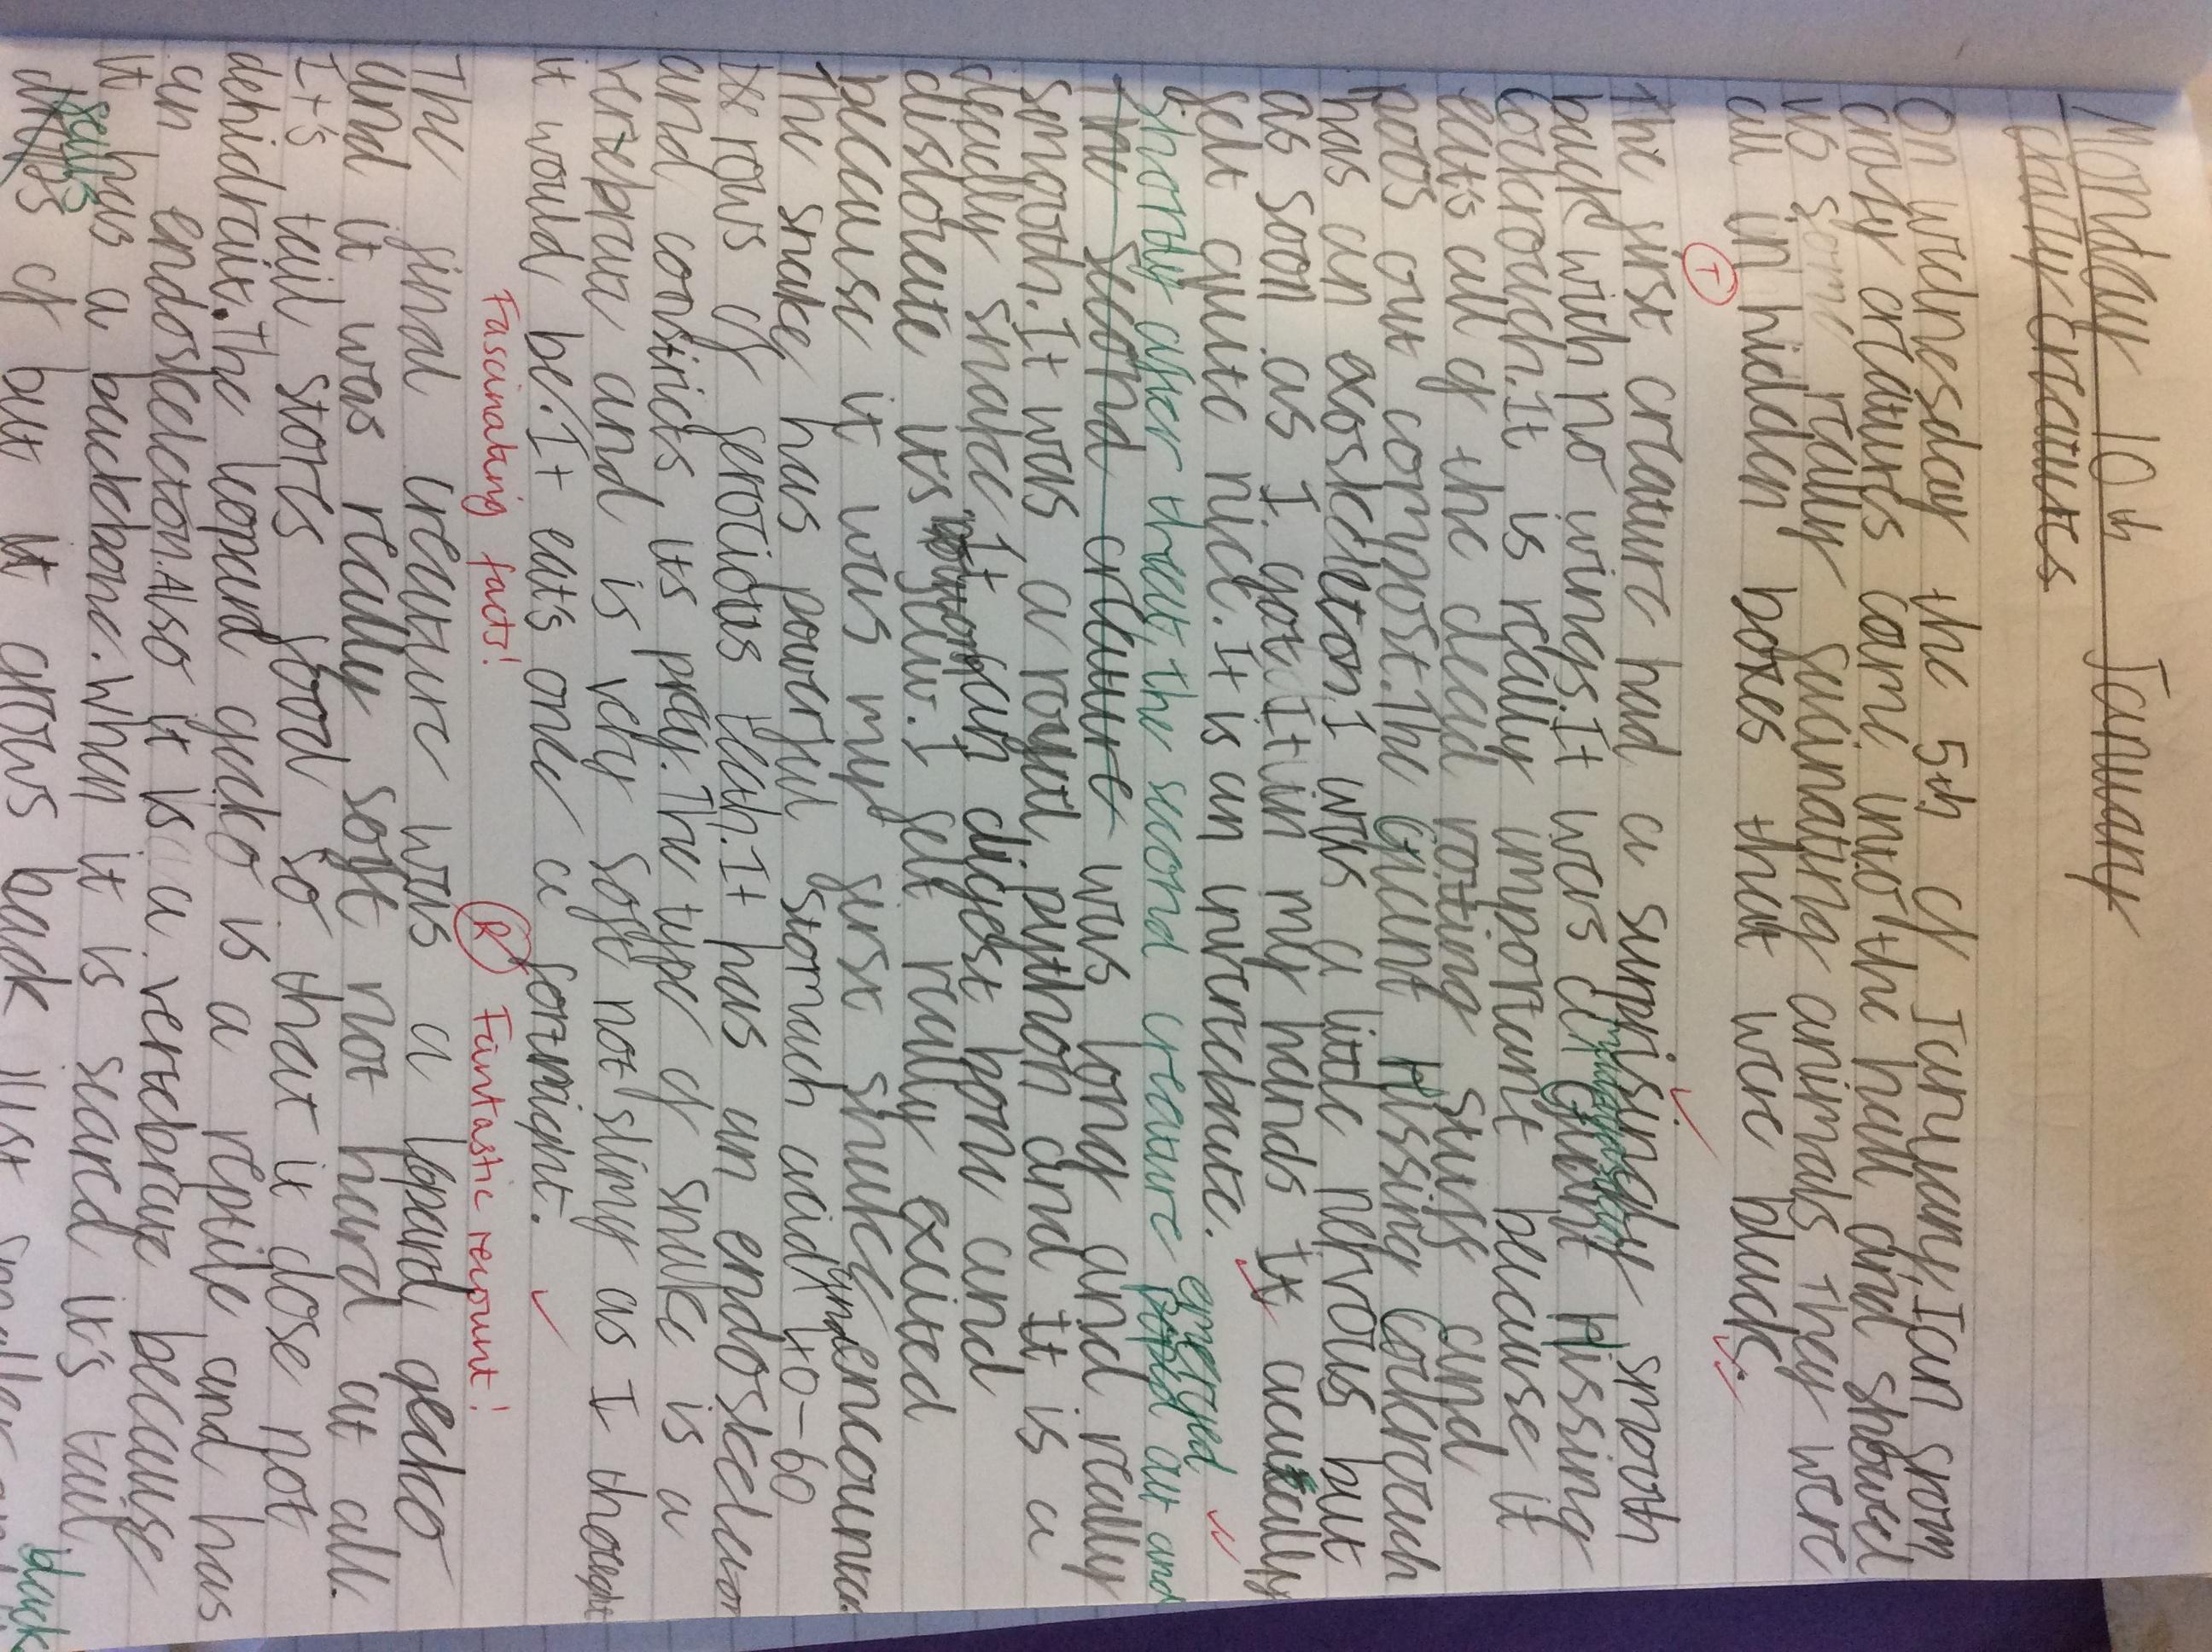 Monday 10th January
crazy creatures
On wednesday the 5th of January, Ian from
crazy creatures came into the hall and showed
us some really facinating animals They were
all in hidden boxes that were black.
T
The first creature had a surprisingly smooth
back with no wings. It was a Giant Hissing
Cockroach. It is really important because it
eat's all of the dead rotting stuff and
poos out compost. The Giant Hissing Cockroach
has an exoskeleton. I was a little nervous but
as soon as I got It in my hands It acutally
felt quite nice. It is an invertebrate.
emerged
Shortly after that, the second creature poped out and
The second creature was long and really
smooth. It was a royal python and It is a
deadly snake. It can digest bone and
dislocate its jaw. I felt really exited
because it was my first snake encounter.
The snake has powerful stomach acid and 40-60
rows of ferotious teeth. It has an endoskeleton
and constricts, its prey. The type of snake is a
vertebrau and is very soft not slimy as I thought
it would be. It eat's once a fortnight.
Fascinating facts! R Fantastic recount!
The final creature was a lepard gecko
and it was really soft not hard at all.
It's tail stores food so that it dose not
dehidrait. The lepard gecko is a reptile and has
an endoskeleton. Also it is a vertebrau because
it has a backbone. When it is scared it's tail
falls of but it grows back just smaller
black